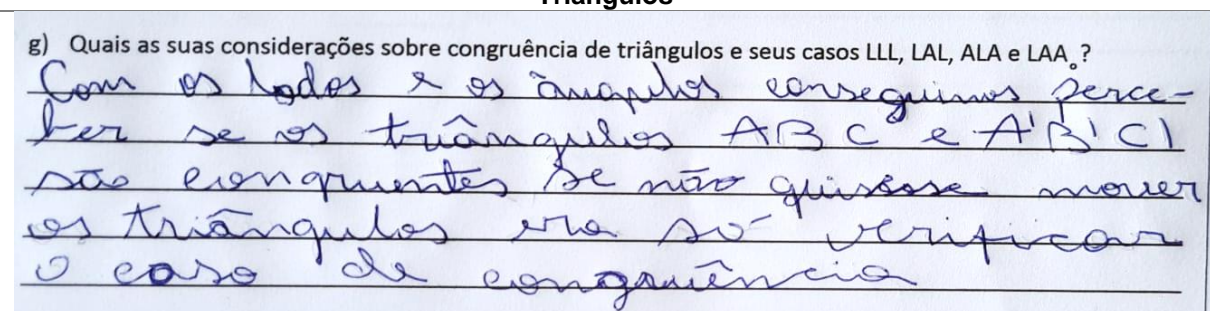 Triângulos
g) Quais as suas considerações sobre congruência de triângulos e seus casos LLL, LAL, ALA e LAAₒ?
Com os lados e os ângulos conseguimos perce-
ber se os triângulos ABC e A'B'C'
são congruentes se não quisesse mover
os triângulos era só verificar
o caso de congruência